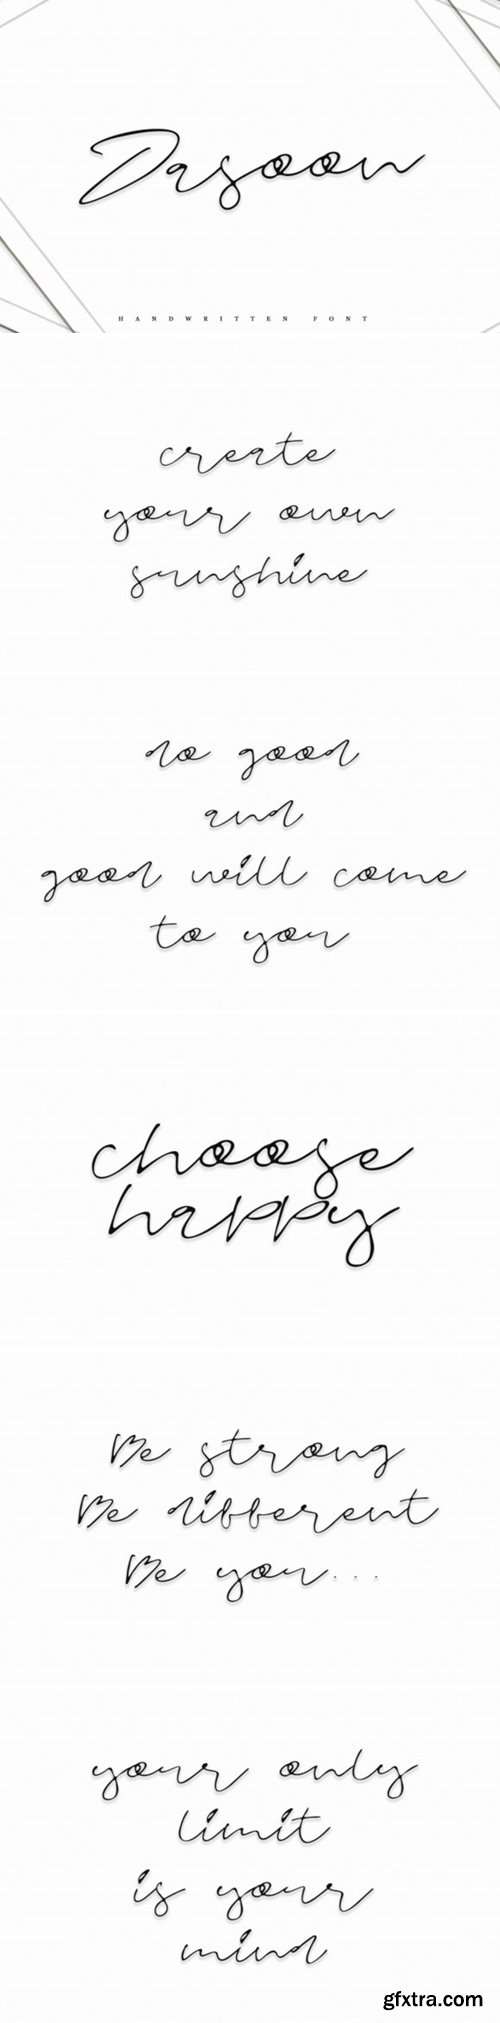 Dasoon
HANDWRITTEN FONT
create
your own
sunshine
do good
and
good will come
to you
choose
happy
Be strong
Be different
Be you...
your only
limit
is your
mind
gfxtra.com